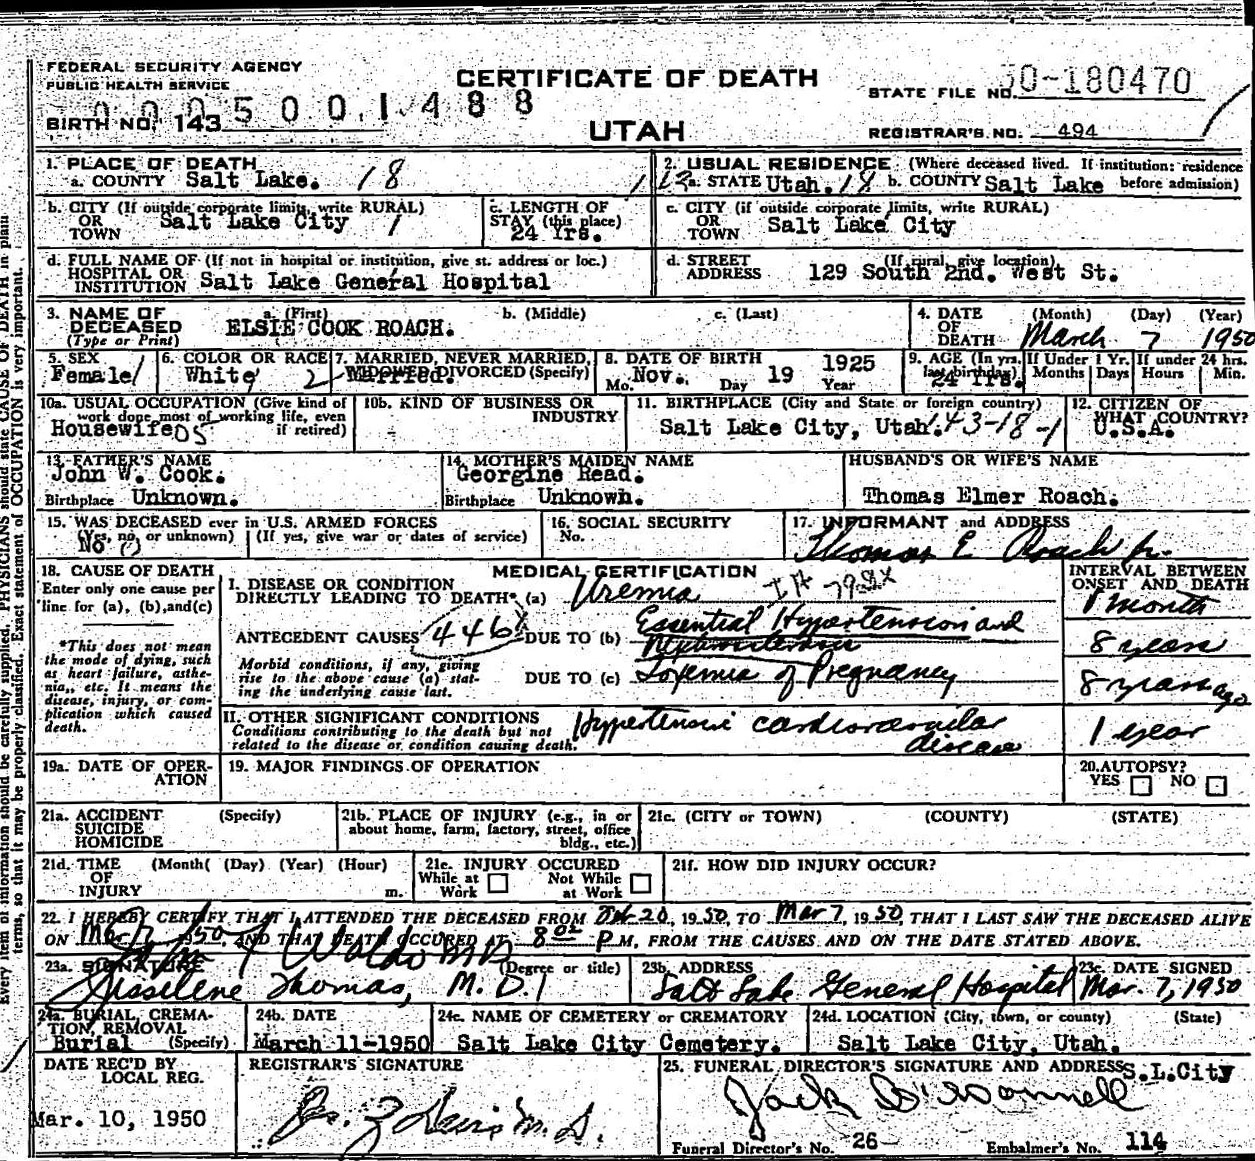 FEDERAL SECURITY AGENCY
PUBLIC HEALTH SERVICE
CERTIFICATE OF DEATH
STATE FILE NO. 50-180470
0005001488
BIRTH NO. 143
UTAH
REGISTRAR'S NO. 494
1. PLACE OF DEATH
a. COUNTY Salt Lake. 18
2. USUAL RESIDENCE (Where deceased lived. If institution: residence before admission)
a. STATE Utah. 18 b. COUNTY Salt Lake
b. CITY (If outside corporate limits, write RURAL) OR TOWN Salt Lake City 1
c. LENGTH OF STAY (this place) 24 Yrs.
c. CITY (if outside corporate limits, write RURAL) OR TOWN Salt Lake City
d. FULL NAME OF (If not in hospital or institution, give st. address or loc.) HOSPITAL OR INSTITUTION Salt Lake General Hospital
d. STREET ADDRESS (If rural, give location) 129 South 2nd. West St.
3. NAME OF DECEASED (Type or Print) a. (First) b. (Middle) c. (Last)
ELSIE COOK ROACH.
4. DATE OF DEATH (Month) (Day) (Year)
March 7 1950
5. SEX Female 1
6. COLOR OR RACE White 1
7. MARRIED, NEVER MARRIED, WIDOWED DIVORCED (Specify) 2 Married.
8. DATE OF BIRTH Mo. Nov. Day 19 1925 Year
9. AGE (In yrs. last birthday) 24 Yrs.
If Under 1 Yr. Months Days
If under 24 hrs. Hours Min.
10a. USUAL OCCUPATION (Give kind of work done most of working life, even if retired) Housewife 05
10b. KIND OF BUSINESS OR INDUSTRY
11. BIRTHPLACE (City and State or foreign country) Salt Lake City, Utah. 143-18-1
12. CITIZEN OF WHAT COUNTRY? U.S.A.
13. FATHER'S NAME
John W. Cook.
Birthplace Unknown.
14. MOTHER'S MAIDEN NAME
Georgine Read.
Birthplace Unknown.
HUSBAND'S OR WIFE'S NAME
Thomas Elmer Roach.
15. WAS DECEASED ever in U.S. ARMED FORCES
(Yes, no, or unknown) (If yes, give war or dates of service)
No 0
16. SOCIAL SECURITY No.
17. INFORMANT and ADDRESS
Thomas E Roach Jr.
18. CAUSE OF DEATH
Enter only one cause per line for (a), (b), and (c)
*This does not mean the mode of dying, such as heart failure, asthenia, etc. It means the disease, injury, or complication which caused death.
MEDICAL CERTIFICATION
INTERVAL BETWEEN ONSET AND DEATH
I. DISEASE OR CONDITION DIRECTLY LEADING TO DEATH* (a) Uremia
1 month
ANTECEDENT CAUSES 446 DUE TO (b) Essential Hypertension and Nephrosclerosis
8 years
Morbid conditions, if any, giving rise to the above cause (a) stating the underlying cause last.
DUE TO (c) Toxemia of Pregnancy
8 years ago
II. OTHER SIGNIFICANT CONDITIONS
Conditions contributing to the death but not related to the disease or condition causing death.
Hypertensive cardiovascular disease
1 year
19a. DATE OF OPERATION
19. MAJOR FINDINGS OF OPERATION
20. AUTOPSY? YES NO
21a. ACCIDENT SUICIDE HOMICIDE (Specify)
21b. PLACE OF INJURY (e.g., in or about home, farm, factory, street, office bldg., etc.)
21c. (CITY or TOWN) (COUNTY) (STATE)
21d. TIME OF INJURY (Month( (Day) (Year) (Hour) m.
21e. INJURY OCCURED While at Work Not While at Work
21f. HOW DID INJURY OCCUR?
22. I HEREBY CERTIFY THAT I ATTENDED THE DECEASED FROM Feb 20, 1950, TO Mar 7, 1950, THAT I LAST SAW THE DECEASED ALIVE
ON Mar 7 1950, AND THAT DEATH OCCURED AT 8:02 P M, FROM THE CAUSES AND ON THE DATE STATED ABOVE.
Waldo MD
23a. SIGNATURE (Degree or title)
Thomas, M. D.
23b. ADDRESS
Salt Lake General Hospital
23c. DATE SIGNED
Mar. 7, 1950
24a. BURIAL, CREMATION, REMOVAL (Specify) Burial
24b. DATE
March 11-1950
24c. NAME OF CEMETERY or CREMATORY
Salt Lake City Cemetery.
24d. LOCATION (City, town, or county) (State)
Salt Lake City, Utah.
DATE REC'D BY LOCAL REG.
Mar. 10, 1950
REGISTRAR'S SIGNATURE
M. D.
25. FUNERAL DIRECTOR'S SIGNATURE AND ADDRESS S.L.City
Jack O'Connell
Funeral Director's No. 26 Embalmer's No. 114
Every item of information should be carefully supplied. PHYSICIANS should state CAUSE OF DEATH in plain
terms, so that it may be properly classified. Exact statement of OCCUPATION is very important.